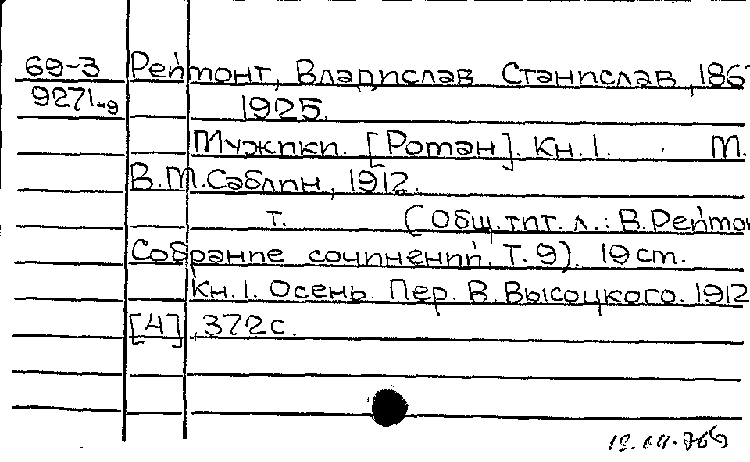 69-3 Реймонт, Владислав Станислав, 186
9271-9 1925.
Мужики. [Роман]. Кн. 1. М.
В.М.Саблин, 1912.
т. (Общ. тит. л.: В. Реймон
Собрание сочинений. Т. 9). 19 cm.
Кн. 1. Осень. Пер. В. Высоцкого. 1912
[4], 372 с.